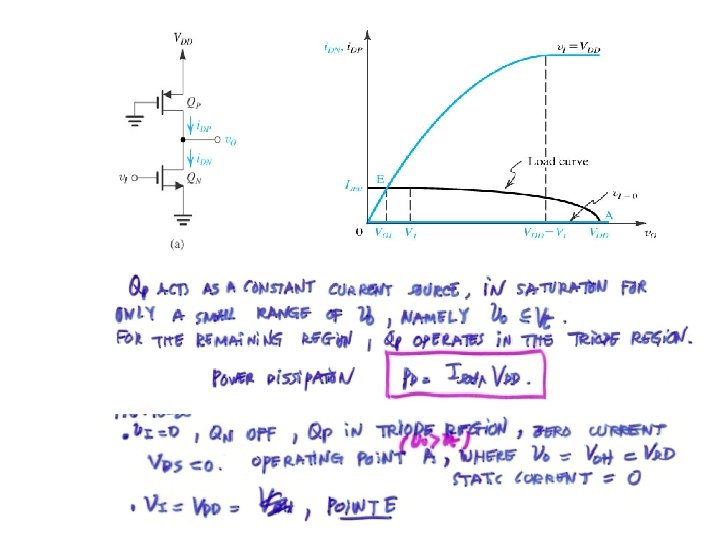 V_DD
Q_P
i_DP
v_O
i_DN
v_I
Q_N
(a)
i_DN, i_DP
v_I = V_DD
Load curve
E
v_I = 0
A
0
V_OL
V_t
V_DD − V_t
V_DD
v_O
Q_P ACTS AS A CONSTANT CURRENT SOURCE, IN SATURATON FOR
ONLY A SMALL RANGE OF v_O, NAMELY v_O ≤ V_t.
FOR THE REMAINING REGION, Q_P OPERATES IN THE TRIODE REGION.
POWER DISSIPATON P_D = V_DD.
• v_I = 0, Q_N OFF, Q_P IN TRIODE REGION, ZERO CURRENT
V_DS = 0. OPERATING POINT A, WHERE v_O = V_OH = V_DD
STATIC CURRENT = 0
• V_I = V_DD = , POINT E